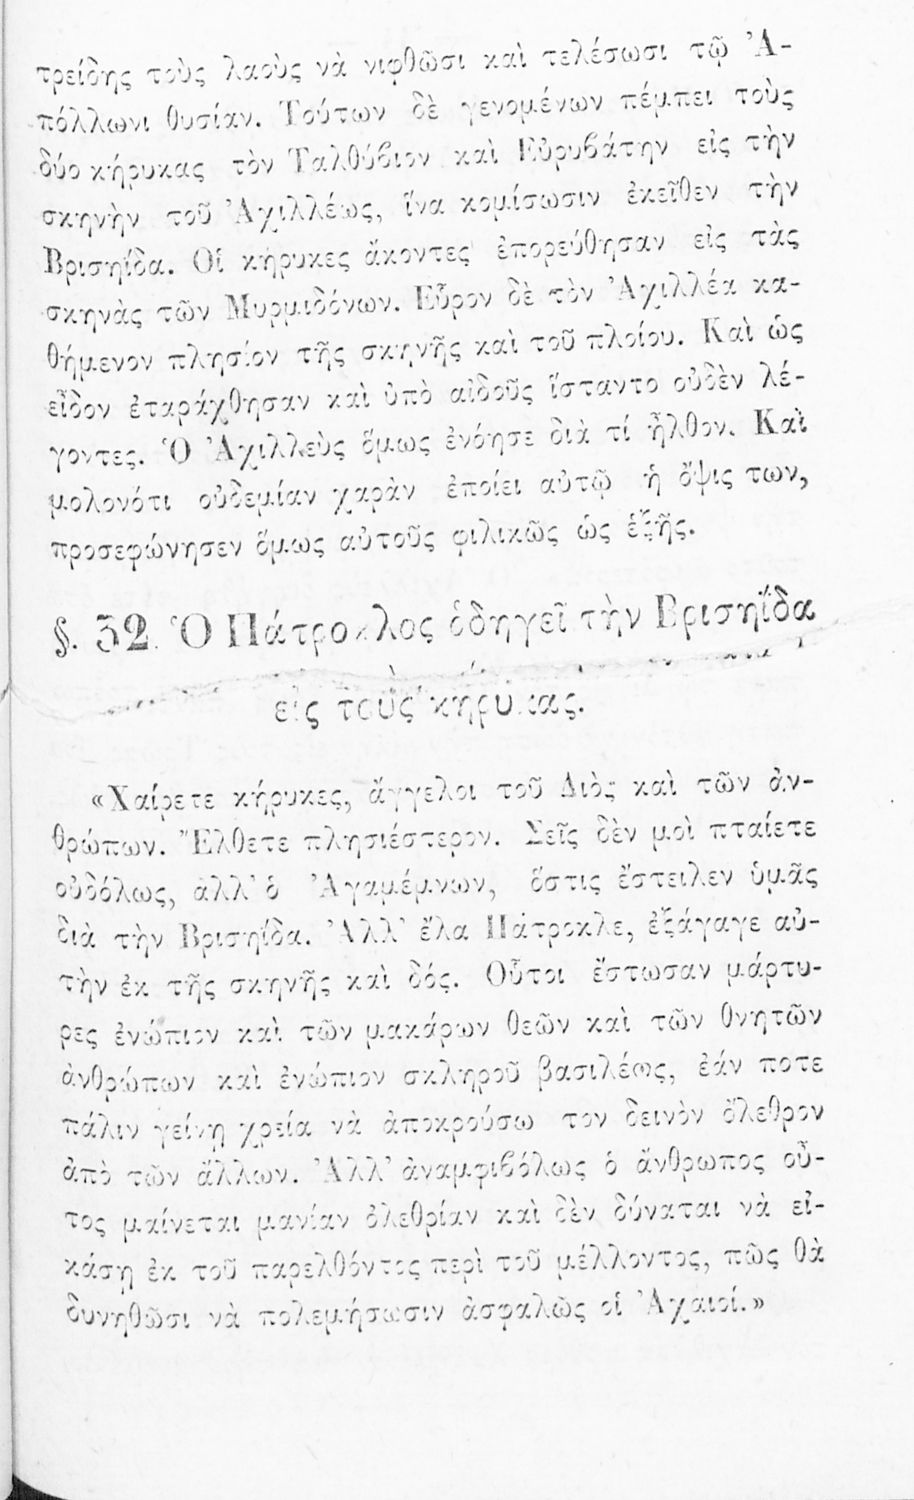 τρείδης τοὺς λαοὺς νὰ νιφθῶσι καὶ τελέσωσι τῷ Ἀ-
πόλλωνι θυσίαν. Τούτων δὲ γενομένων πέμπει τοὺς
δύο κήρυκας τὸν Ταλθύβιον καὶ Εὐρυβάτην εἰς τὴν
σκηνὴν τοῦ Ἀχιλλέως, ἵνα κομίσωσιν ἐκεῖθεν τὴν
Βρισηΐδα. Οἱ κήρυκες ἄκοντες ἐπορεύθησαν εἰς τὰς
σκηνὰς τῶν Μυρμιδόνων. Εὗρον δὲ τὸν Ἀχιλλέα κα-
θήμενον πλησίον τῆς σκηνῆς καὶ τοῦ πλοίου. Καὶ ὡς
εἶδον ἐταράχθησαν καὶ ὑπὸ αἰδοῦς ἵσταντο οὐδὲν λέ-
γοντες. Ὁ Ἀχιλλεὺς ὅμως ἐνόησε διὰ τί ἦλθον. Καὶ
μολονότι οὐδεμίαν χαρὰν ἐποίει αὐτῷ ἡ ὄψις των,
προσεφώνησεν ὅμως αὐτοὺς φιλικῶς ὡς ἑξῆς.
§. 32. Ὁ Πάτροκλος ὁδηγεῖ τὴν Βρισηΐδα
εἰς τοὺς κήρυκας.
«Χαίρετε κήρυκες, ἄγγελοι τοῦ Διὸς καὶ τῶν ἀν-
θρώπων. Ἔλθετε πλησιέστερον. Σεῖς δὲν μοὶ πταίετε
οὐδόλως, ἀλλ' ὁ Ἀγαμέμνων, ὅστις ἔστειλεν ὑμᾶς
διὰ τὴν Βρισηΐδα. Ἀλλ' ἔλα Πάτροκλε, ἐξάγαγε αὐ-
τὴν ἐκ τῆς σκηνῆς καὶ δός. Οὗτοι ἔστωσαν μάρτυ-
ρες ἐνώπιον καὶ τῶν μακάρων θεῶν καὶ τῶν θνητῶν
ἀνθρώπων καὶ ἐνώπιον σκληροῦ βασιλέως, ἐάν ποτε
πάλιν γείνῃ χρεία νὰ ἀποκρούσω τον δεινὸν ὄλεθρον
ἀπὸ τῶν ἄλλων. Ἀλλ' ἀναμφιβόλως ὁ ἄνθρωπος οὗ-
τος μαίνεται μανίαν ὀλεθρίαν καὶ δὲν δύναται νὰ εἰ-
κάσῃ ἐκ τοῦ παρελθόντος περὶ τοῦ μέλλοντος, πῶς θὰ
δυνηθῶσι νὰ πολεμήσωσιν ἀσφαλῶς οἱ Ἀχαιοί.»